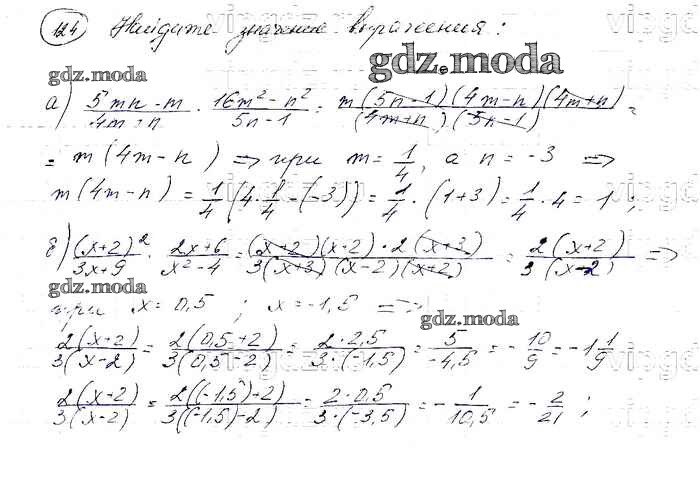 124 Найдите значение выражения:
gdz.moda
gdz.moda
а) (5mn - m)/(4m + n) · (16m² - n²)/(5n - 1) = m(5n - 1)(4m - n)(4m + n)/((4m + n)(5n - 1)) =
= m(4m - n) => при m = 1/4, а n = -3 =>
m(4m - n) = 1/4(4·1/4 - (-3)) = 1/4 · (1+3) = 1/4 · 4 = 1;
б) (x+2)²/(3x+9) · (2x+6)/(x²-4) = (x+2)(x+2)·2(x+3)/(3(x+3)(x-2)(x+2)) = 2(x+2)/(3(x-2)) =>
gdz.moda
при x = 0,5; x = -1,5 =>
gdz.moda
2(x+2)/(3(x-2)) = 2(0,5+2)/(3(0,5-2)) = 2·2,5/(3·(-1,5)) = 5/(-4,5) = -10/9 = -1 1/9
2(x+2)/(3(x-2)) = 2((-1,5)+2)/(3((-1,5)-2)) = 2·0,5/(3·(-3,5)) = -1/10,5 = -2/21;